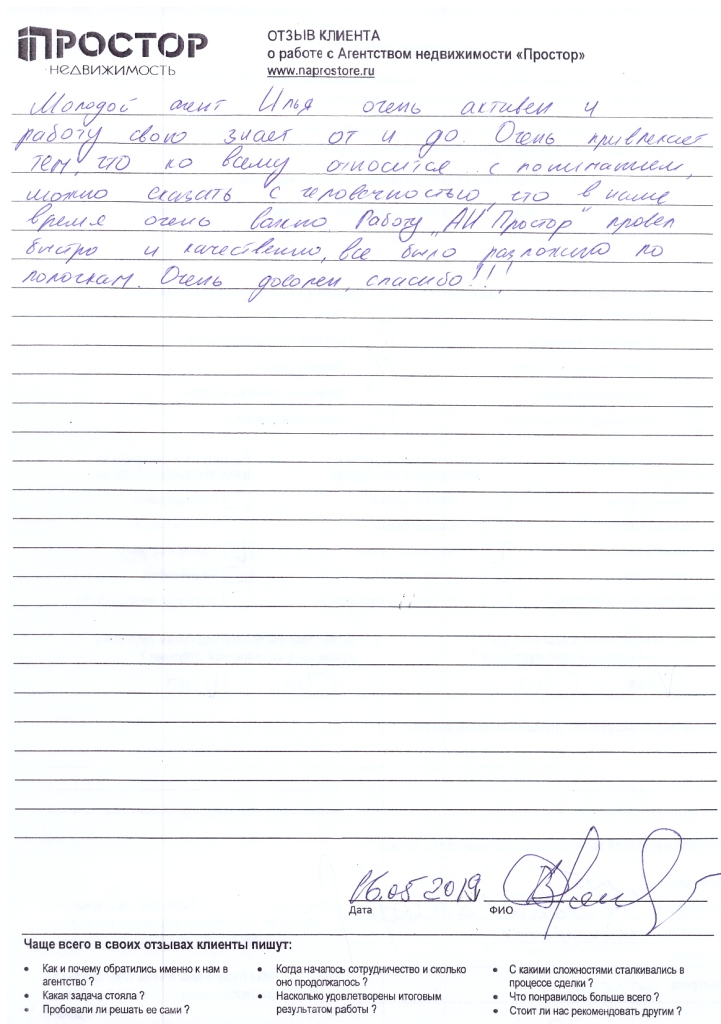 ПРОСТОР
НЕДВИЖИМОСТЬ
ОТЗЫВ КЛИЕНТА
о работе с Агентством недвижимости «Простор»
www.naprostore.ru
Молодой агент Илья очень активен и
работу свою знает от и до. Очень привлекает
тем, что ко всему относится с пониманием,
можно сказать с человечностью, что в наше
время очень важно. Работу "АН Простор" провел
быстро и качественно, все было разложено по
полочкам. Очень доволен, спасибо!!!
16.05 2019
Дата
ФИО
Чаще всего в своих отзывах клиенты пишут:
• Как и почему обратились именно к нам в
агентство ?
• Какая задача стояла ?
• Пробовали ли решать ее сами ?
• Когда началось сотрудничество и сколько
оно продолжалось ?
• Насколько удовлетворены итоговым
результатом работы ?
• С какими сложностями сталкивались в
процессе сделки ?
• Что понравилось больше всего ?
• Стоит ли нас рекомендовать другим ?